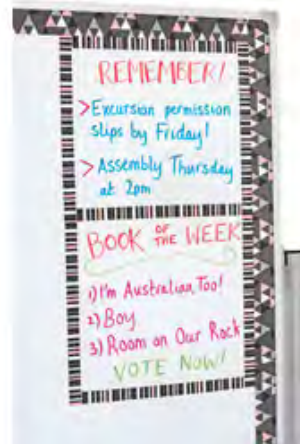 REMEMBER!
> Excursion permission
slips by Friday!
> Assembly Thursday
at 2pm
BOOK OF THE WEEK
1) I'm Australian, Too!
2) Boy
3) Room on Our Rock
VOTE NOW!